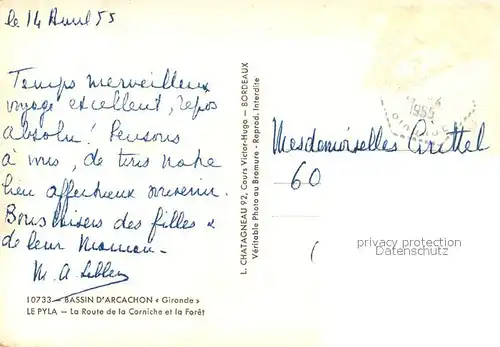 le 14 Avril 55
Temps merveilleux
voyage excellent, repos
absolu! Pensons
à vous, de tous notre
bien affectueux souvenir.
Bons baisers des filles &
de leur Maman.
M. A.
10733 — BASSIN D'ARCACHON « Gironde »
LE PYLA — La Route de la Corniche et la Forêt
L. CHATAGNEAU 92, Cours Victor-Hugo — BORDEAUX
Véritable Photo au Bromure - Reprod. Interdite
1955
Mesdemoiselles
60
privacy protection
Datenschutz